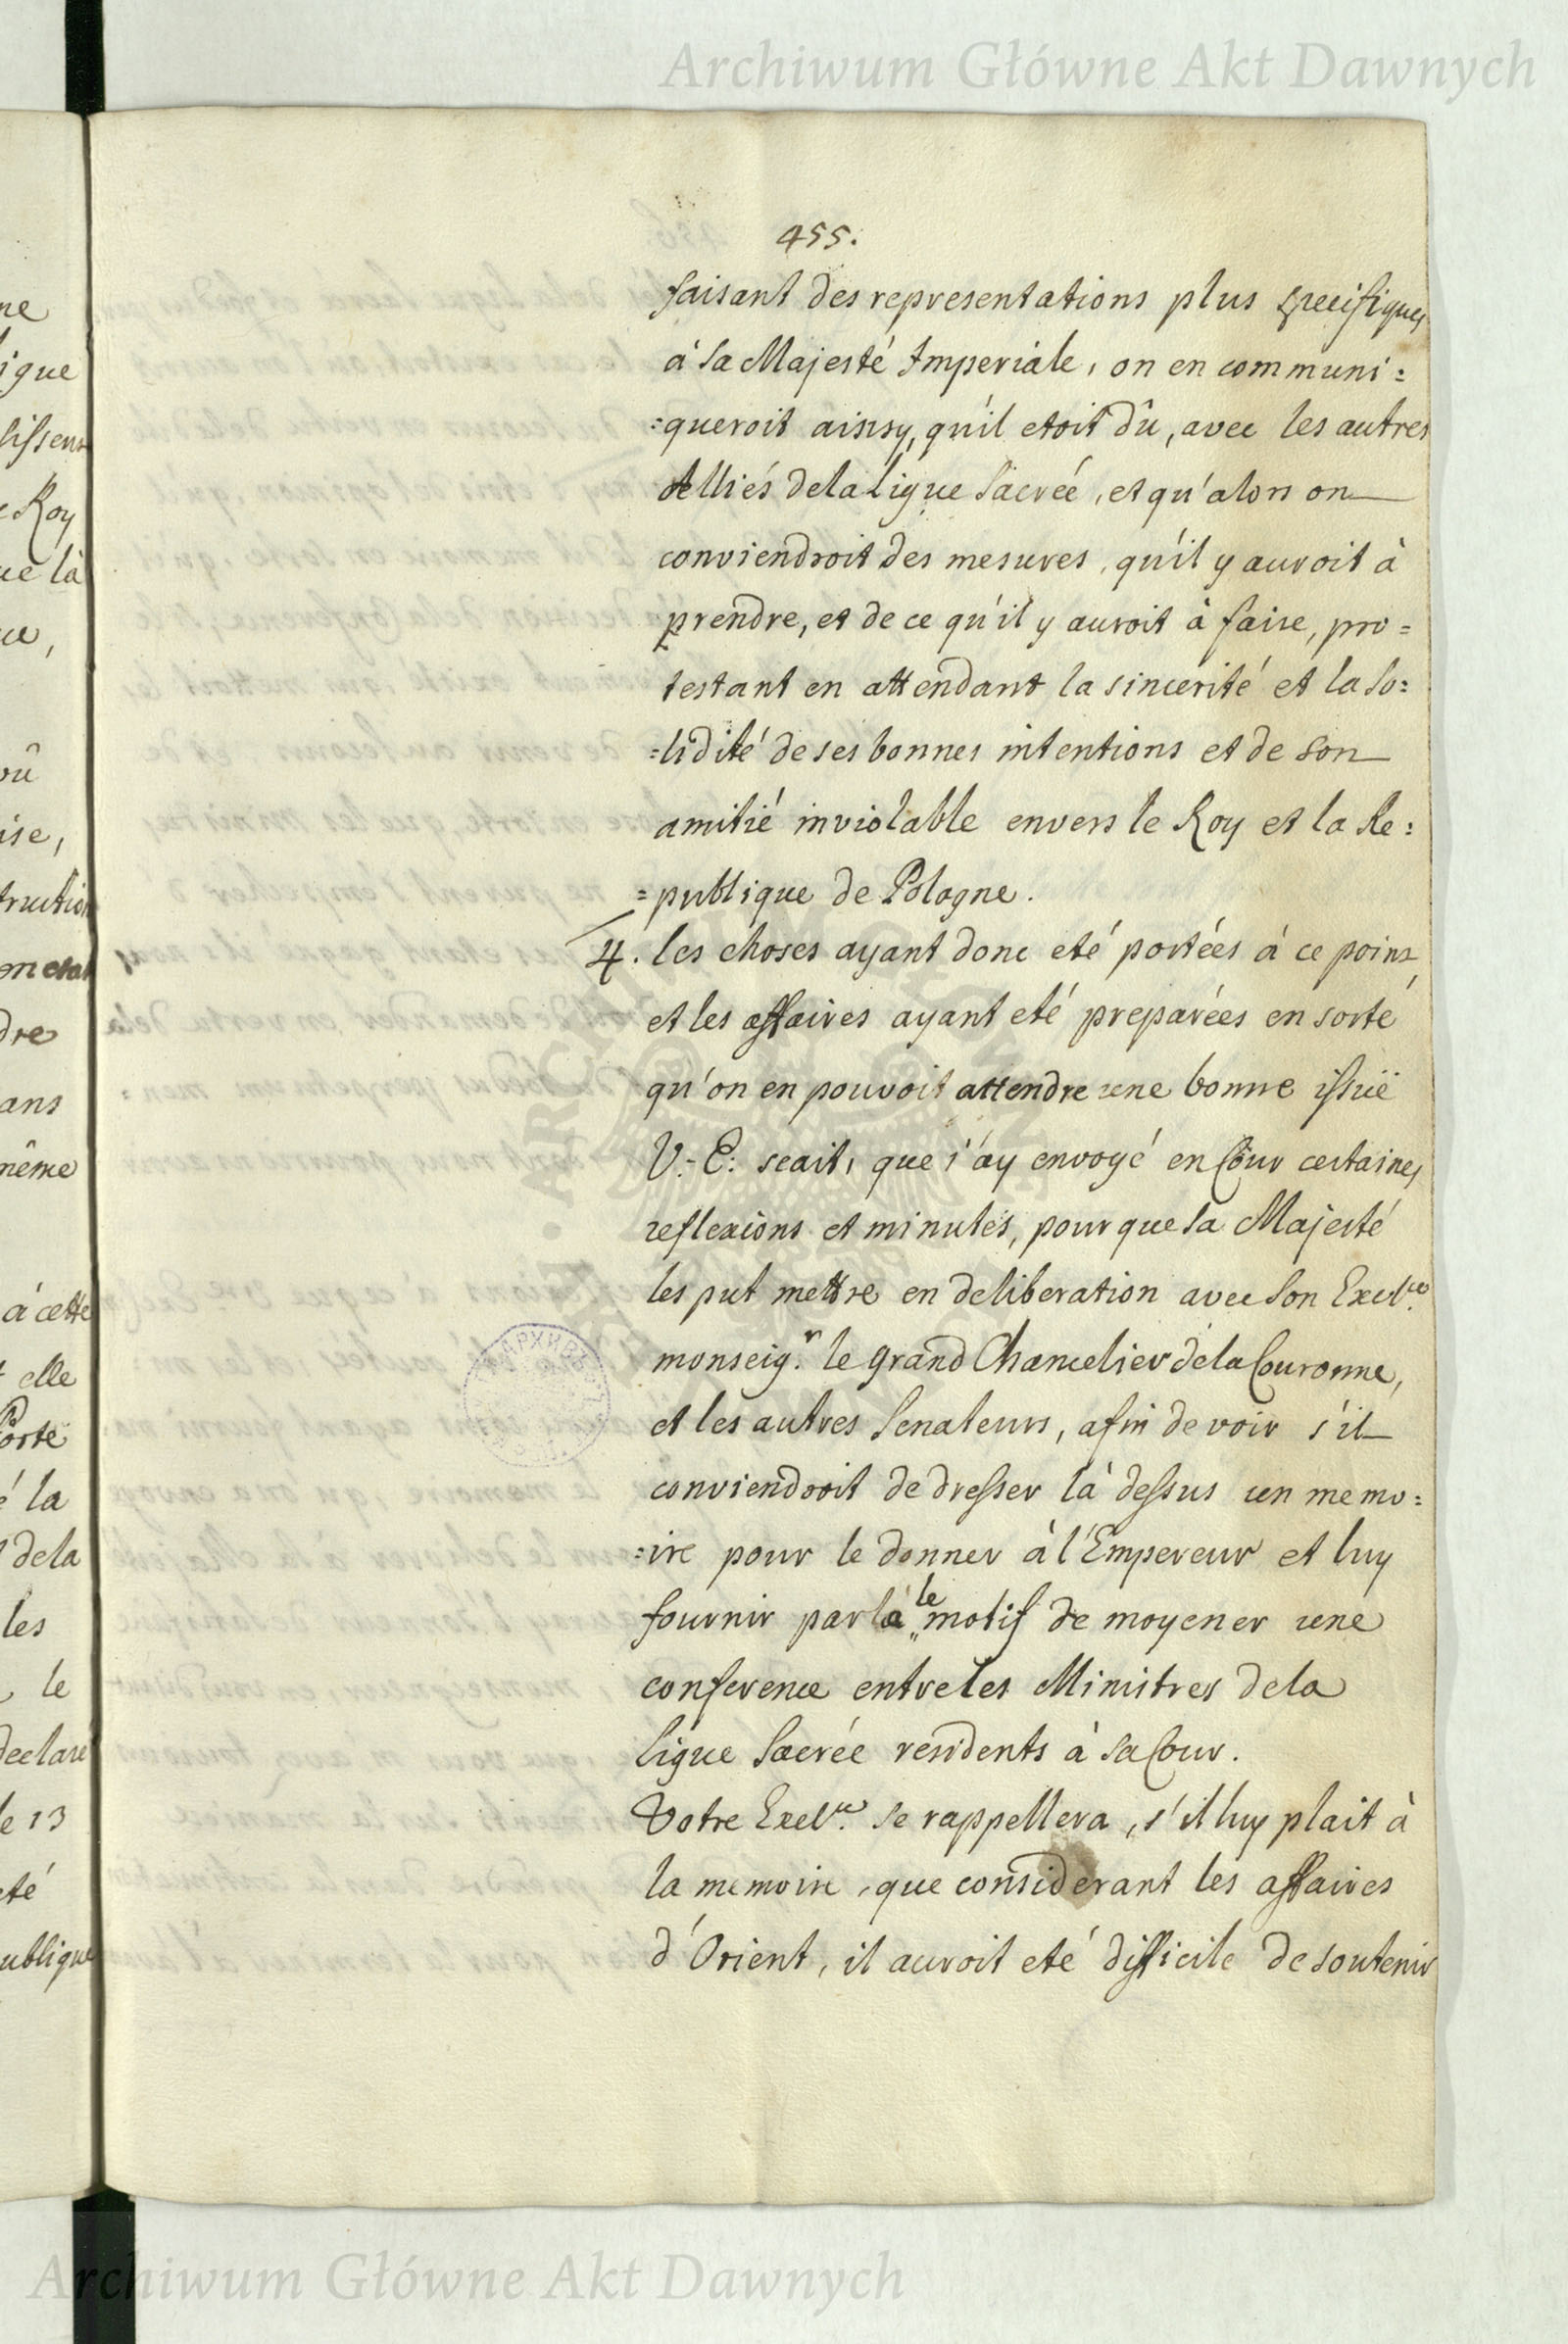 Archiwum Główne Akt Dawnych
455.
faisant des representations plus specifiques
à sa Majesté Imperiale, on en communi=
=queroit ainsy, qu'il etoit dû, avec les autres
Alliés de la Ligue Sacrée, et qu'alors on
conviendroit des mesures, qu'il y auroit à
prendre, et de ce qu'il y auroit à faire, pro=
testant en attendant la sincerité et la so=
=lidité de ses bonnes intentions et de son
amitié inviolable envers le Roy et la Re=
=publique de Pologne.
4. les choses ayant donc eté portées à ce point,
et les affaires ayant eté preparées en sorte
qu'on en pouvoit attendre une bonne issuë
V. E: scait, que j'ay envoyé en Cour certaines
reflexions et minutes, pour que sa Majesté
les put mettre en deliberation avec Son Excl.ce
monseig.r le grand Chancelier de la Couronne,
et les autres Senateurs, afin de voir s'il
conviendroit de dresser là dessus un memo=
=ire pour le donner à l'Empereur et luy
fournir par là le motif de moyener une
conference entre les Ministres de la
Ligue Sacrée residents à sa Cour.
Votre Excl.ce se rappellera, s'il luy plait à
la memoire, que considerant les affaires
d'Orient, il auroit eté difficile de soutenir
ne
igue
lissent
e Roy
ue la
ue,
où
ise,
truction
on etat
dre
ans
même
à cette
elle
Porte
é la
de la
les
, le
declaré
le 13
eté
ublique
Archiwum Główne Akt Dawnych